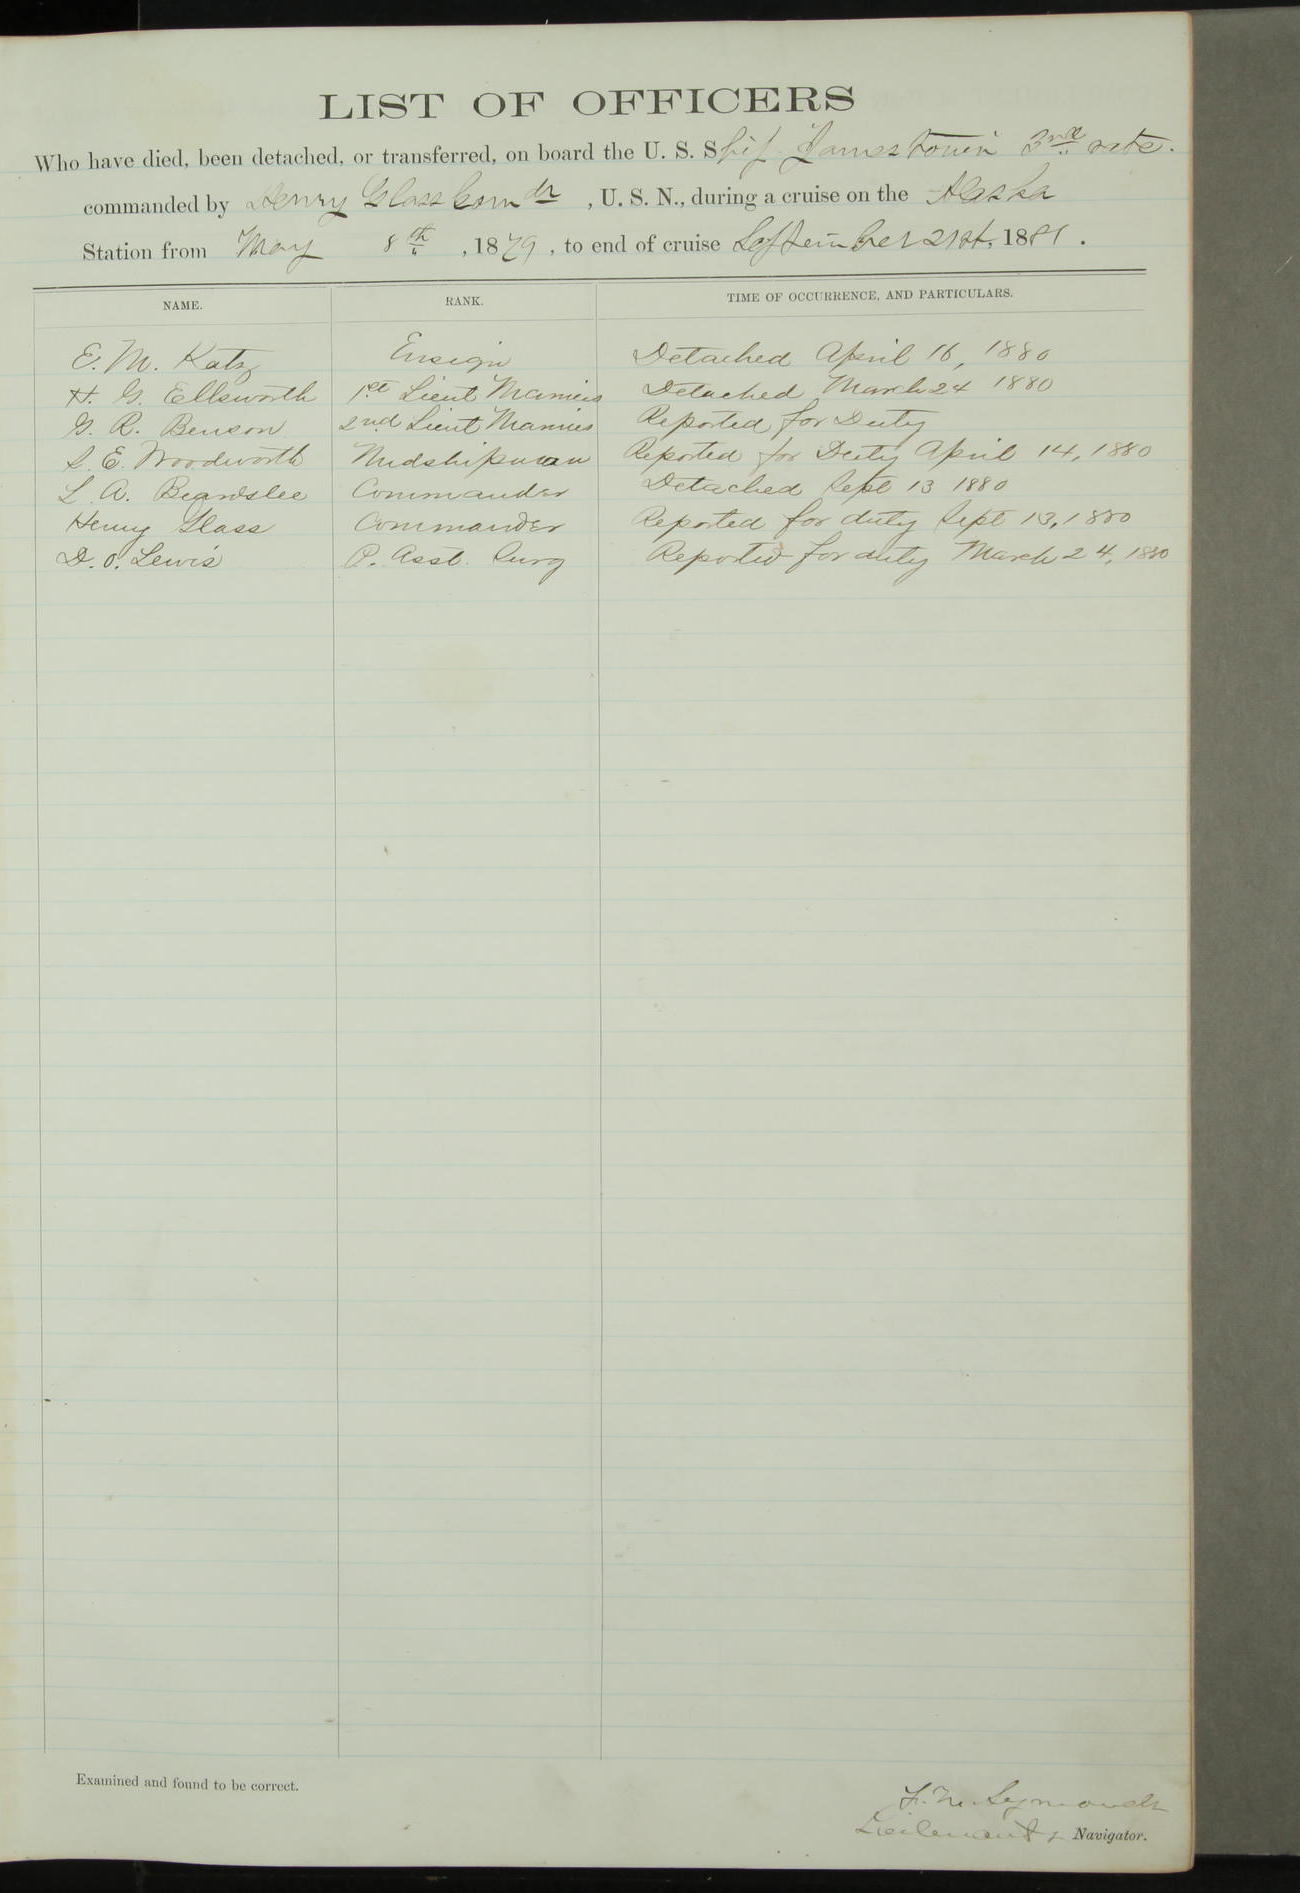 LIST OF OFFICERS
Who have died, been detached, or transferred, on board the U. S. Ship Jamestown 3rd rate.
commanded by Henry Glass Comdr , U. S. N., during a cruise on the Alaska
Station from May 8th , 1879 , to end of cruise September 21st, 1881 .
NAME. RANK. TIME OF OCCURRENCE, AND PARTICULARS.
E. M. Katz Ensign Detached April 16, 1880
H. G. Ellsworth 1st Lieut Marines Detached March 24 1880
G. R. Benson 2nd Lieut Marines Reported for Duty
S. E. Woodworth Midshipman Reported for Duty April 14, 1880
L. A. Beardslee Commander Detached Sept 13 1880
Henry Glass Commander Reported for duty Sept 13, 1880
D. O. Lewis P. Asst. Surg Reported for duty March 24, 1880
Examined and found to be correct.
F. M. Symonds
Lieutenant & Navigator.